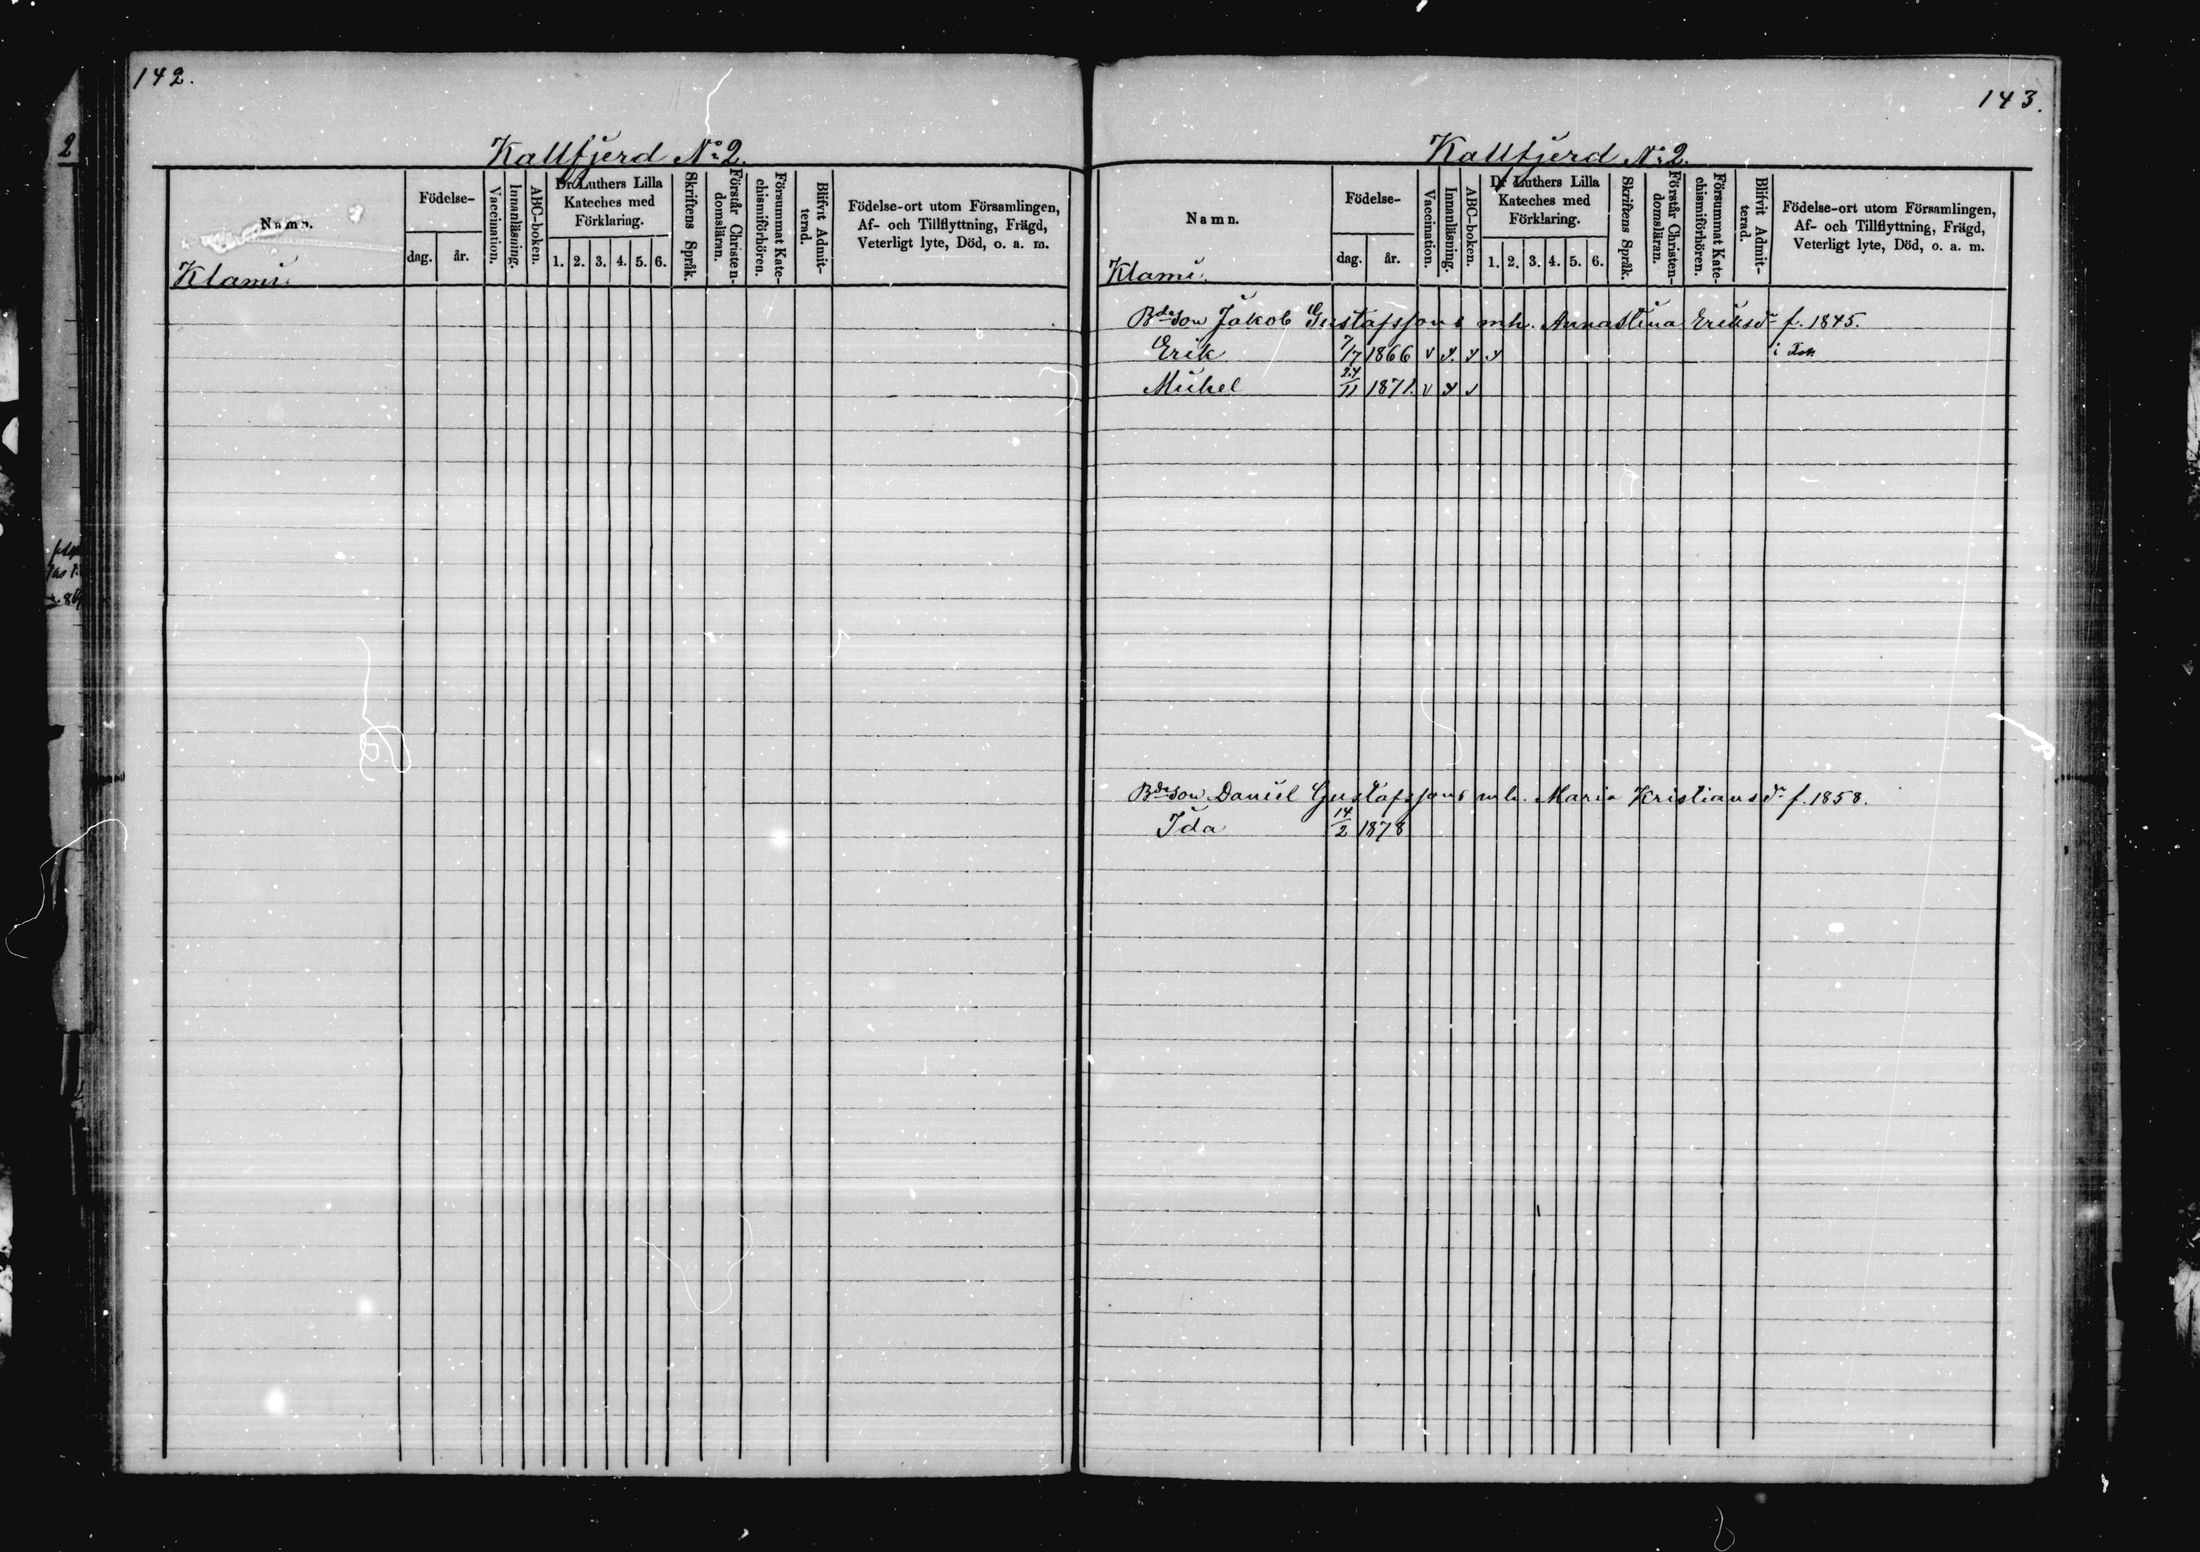 142.
Kallfjerd No 2.
Namn.
Födelse-
dag.
år.
Vaccination.
Innanläsning.
ABC-boken.
Dr Luthers Lilla
Kateches med
Förklaring.
1. 2. 3. 4. 5. 6.
Skriftens Språk.
Förstår Christen-
domsläran.
Försummat Kate-
chismiförhören.
Blifvit Admit-
terad.
Födelse-ort utom Församlingen,
Af- och Tillflyttning, Frägd,
Veterligt lyte, Död, o. a. m.
Klami.
143.
Kallfjerd No 2.
Namn.
Födelse-
dag.
år.
Vaccination.
Innanläsning.
ABC-boken.
Dr Luthers Lilla
Kateches med
Förklaring.
1. 2. 3. 4. 5. 6.
Skriftens Språk.
Förstår Christen-
domsläran.
Försummat Kate-
chismiförhören.
Blifvit Admit-
terad.
Födelse-ort utom Församlingen,
Af- och Tillflyttning, Frägd,
Veterligt lyte, Död, o. a. m.
Klami.
Bdeson Jakob Gustafssons mh. Anna Stina Eriksdr f. 1845.
Erik 7/17 1866 v
Mickel 24/11 1871. v
Bdeson Daniel Gustafssons mh. Maria Kristiansdr f. 1858.
Ida 14/2 1878